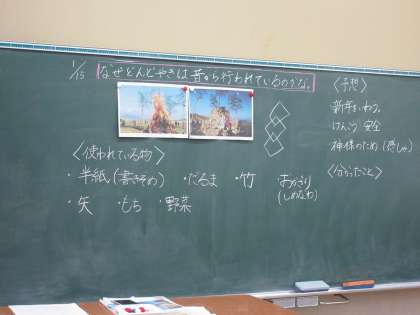 1/15 なぜどんどやきは昔から行われているのかな。
〈予想〉
新年をいわう。
けんこう 安全
神様のため(感しゃ)
〈分かったこと〉
〈使われている物〉
・半紙(書きぞめ) ・だるま ・竹 おかざり
(しめなわ)
・矢 ・もち ・野菜